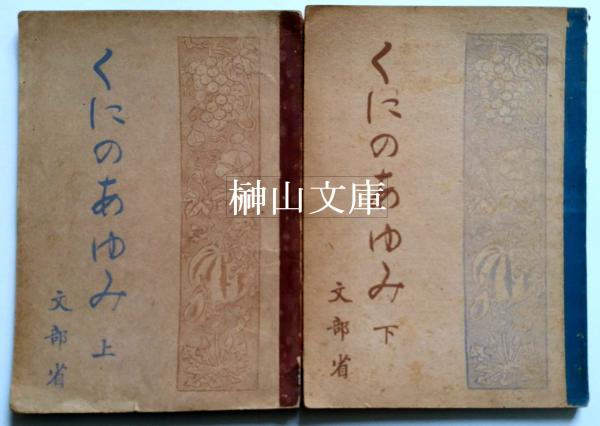 くにのあゆみ 上
文部省
くにのあゆみ 下
文部省
榊山文庫